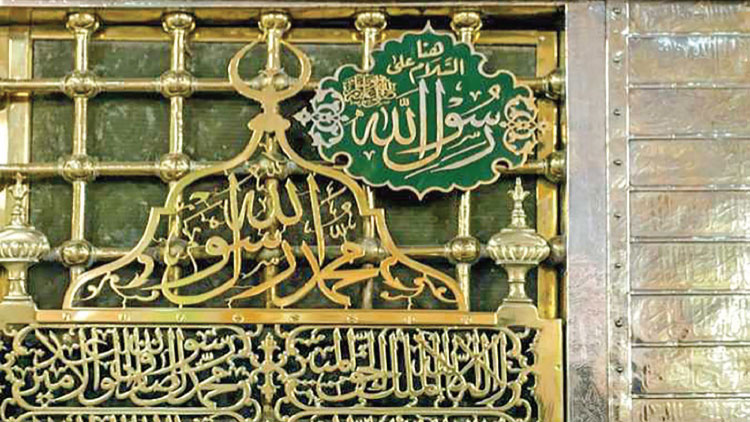 هنا
السلام على
رسول الله
محمد رسول الله
لا إله إلا الله الملك الحق المبين
محمد رسول الله الصادق الوعد الأمين